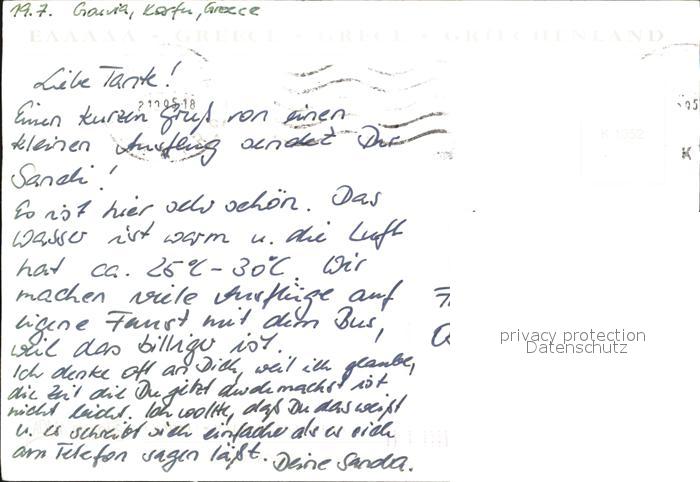 19.7. Gouvia, Korfu, Greece
ΕΛΛΑΔΑ - GREECE - GRECE - GRIECHENLAND
Liebe Tante!
Einen kurzen Gruß von einen
kleinen Ausflug sendet Dir
Sandi!
Es ist hier sehr schön. Das
Wasser ist warm u. die Luft
hat ca. 25°C - 30°C. Wir
machen viele Ausflüge auf
eigene Faust mit dem Bus,
weil das billiger ist. !
Ich denke oft an Dich, weil ich glaube,
die Zeit die Du jetzt durchmachst ist
nicht leicht. Ich wollte, daß Du das weißt
u. es schreibt sich einfacher als es sich
am Telefon sagen läßt. Deine Sandra.
K 1352
K
privacy protection
Datenschutz